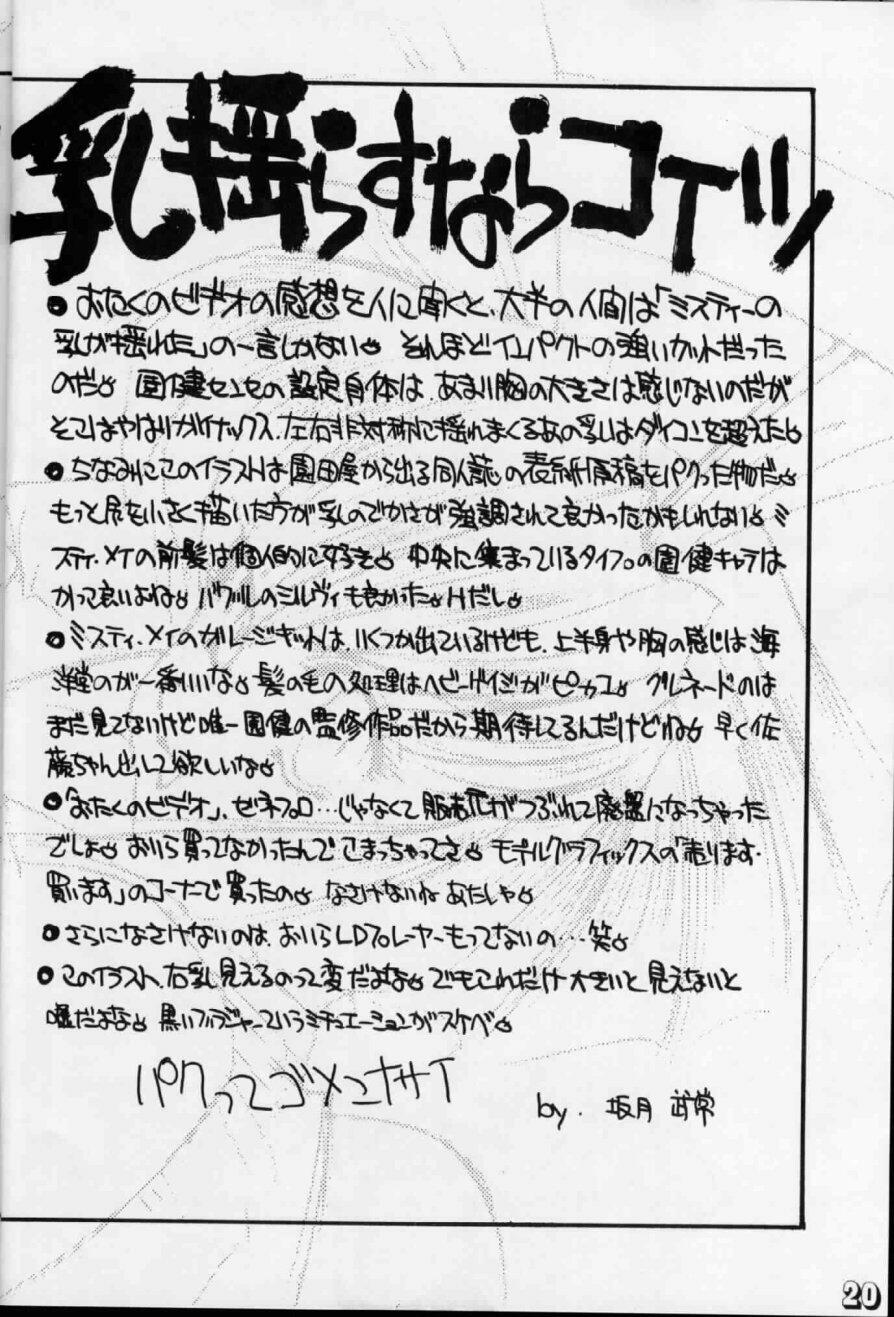 乳揺らすならコイツ
●おたくのビデオの感想を人に聞くと、大半の人間は「ミスティーの
乳が揺れた」の一言しかない。それほどインパクトの強いカットだった
のだ。園健センセの設定自体は、あまり胸の大きさは感じないのだが
そこはやはりガイナックス、左右非対称に揺れまくるあの乳はダイコンを超えた。
●ちなみにこのイラストは園田屋から出る同人誌の表紙原稿をパクった物だ。
もっと尻を小さく描いた方が乳のでかさが強調されて良かったかもしれない。ミ
スティ・メイの前髪は個人的に好き。中央に集まっているタイプの園健キャラは
かって良いよね。バウバルのシルヴィも良かった。Hだし。
●ミスティ・メイのガレージキットは、いくつか出ているけども、上半身や胸の感じは海
洋堂のが一番いいな。髪の毛の処理はヘビーゲイジがピカ一。グレネードのは
まだ見てないけど唯一園健の監修作品だから期待してるんだけどね。早く佐
藤ちゃん出して欲しいな。
●「おたくのビデオ」、ゼネプロ…じゃなくて販売元がつぶれて廃盤になっちゃった
でしょ。おいら買ってなかったんでこまっちゃってさ。モデルグラフィックスの「売ります・
買います」のコーナーで買ったの。なさけないね あたしゃ。
●さらになさけないのは、おいらLDプレーヤーもってないの…笑。
●このイラスト、右乳見えるのって変だよな。でもこれだけ大きいと見えないと
嘘だよな。黒いブラジャーっていうシチュエーションがスケベ。
パクってゴメンナサイ
by. 坂月 武常
20